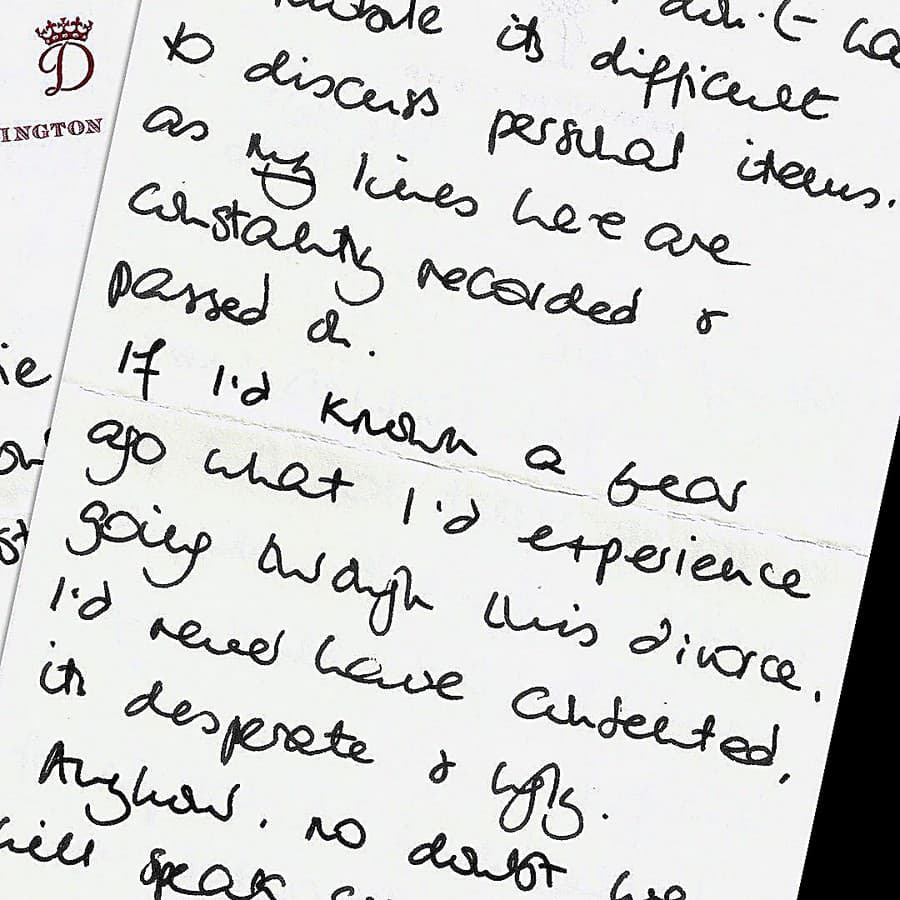 D
INGTON
don't
its difficult
to discuss personal items.
as my lines here are
constantly recorded &
passed on.
If I'd known a year
ago what I'd experience
going through this divorce.
I'd never have consented,
its desperate & ugly.
Anyhow. no doubt we
will speak